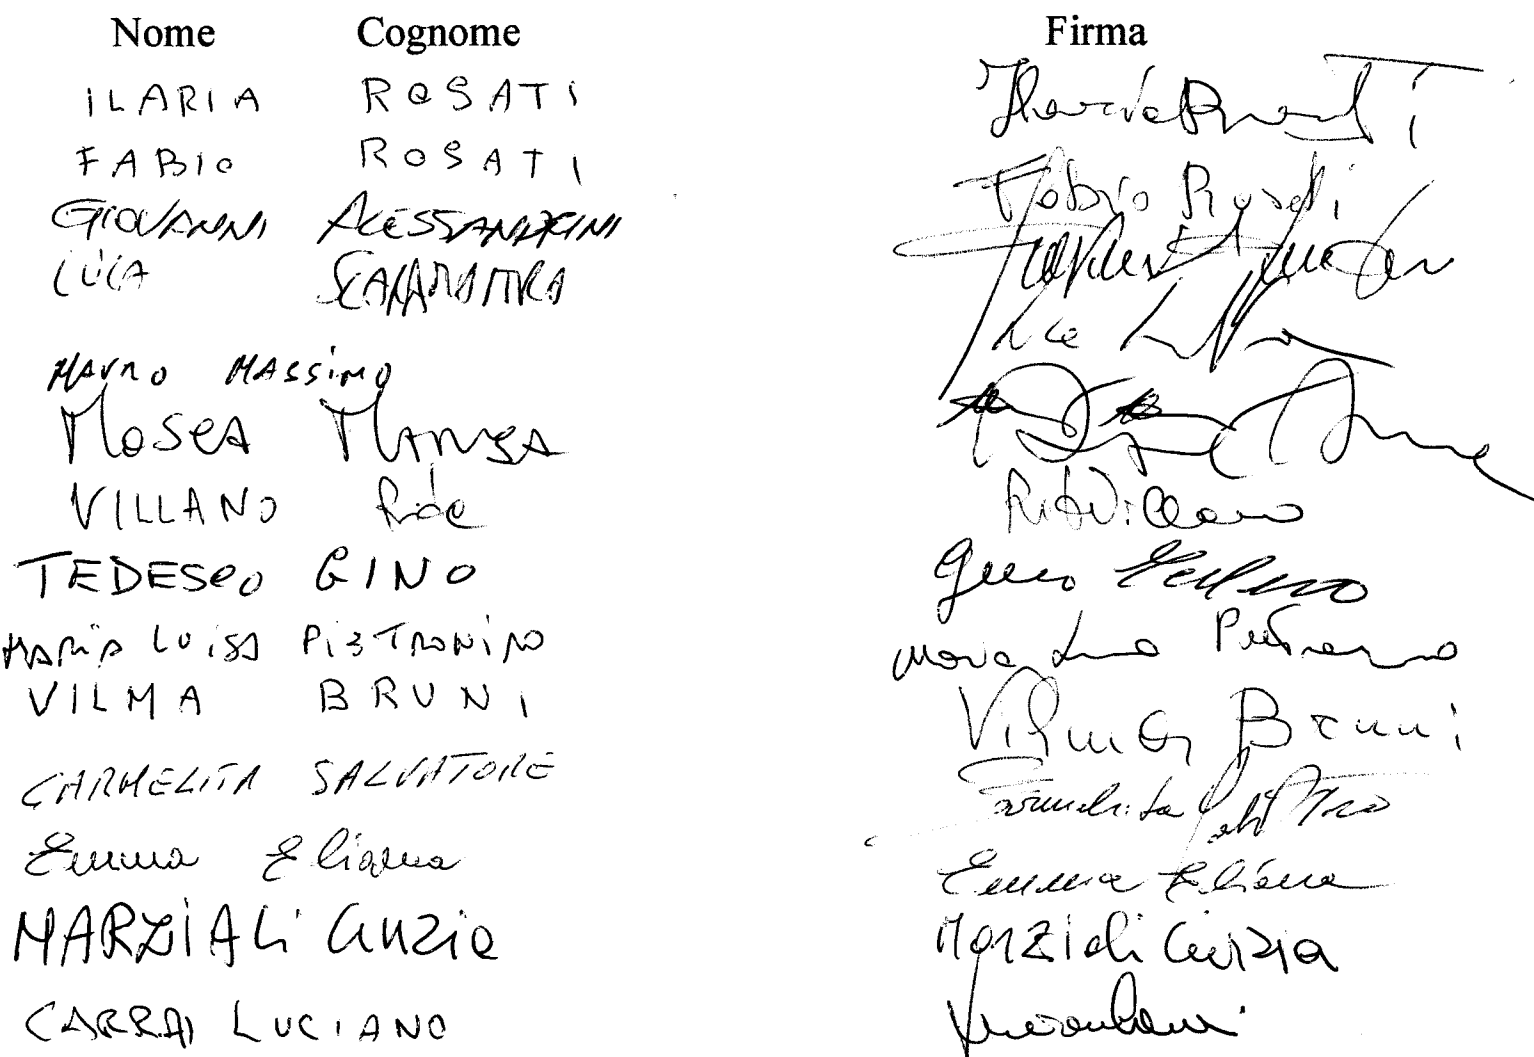 Nome Cognome Firma
ILARIA ROSATI Ilaria Rosati
FABIO ROSATI Fabio Rosati
GIOVANNI ALESSANDRINI
LUCA
MAURO MASSIMO
VILLANO Rita Rita Villano
TEDESCO GINO Gino Tedesco
MARIA LUISA PIETRONIRO
VILMA BRUNI Vilma Bruni
CARMELITA SALVATORE Carmelita Salvatore
Emma Eliana Emma Eliana
MARZIALI Cinzia Marziali Cinzia
CARRAI LUCIANO